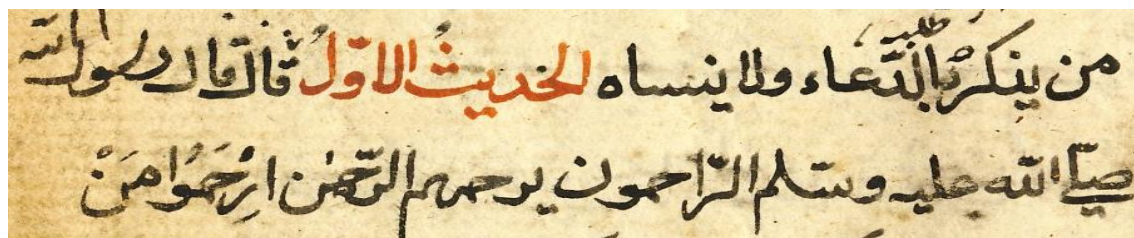 من يذكر بالدعاء ولا ينساه الحديث الاوّلُ قال قال رسول الله
صلّى الله عليه وسلم الرّاحمون يرحمهم الرّحمٰن ارْحَمُوا مَنْ